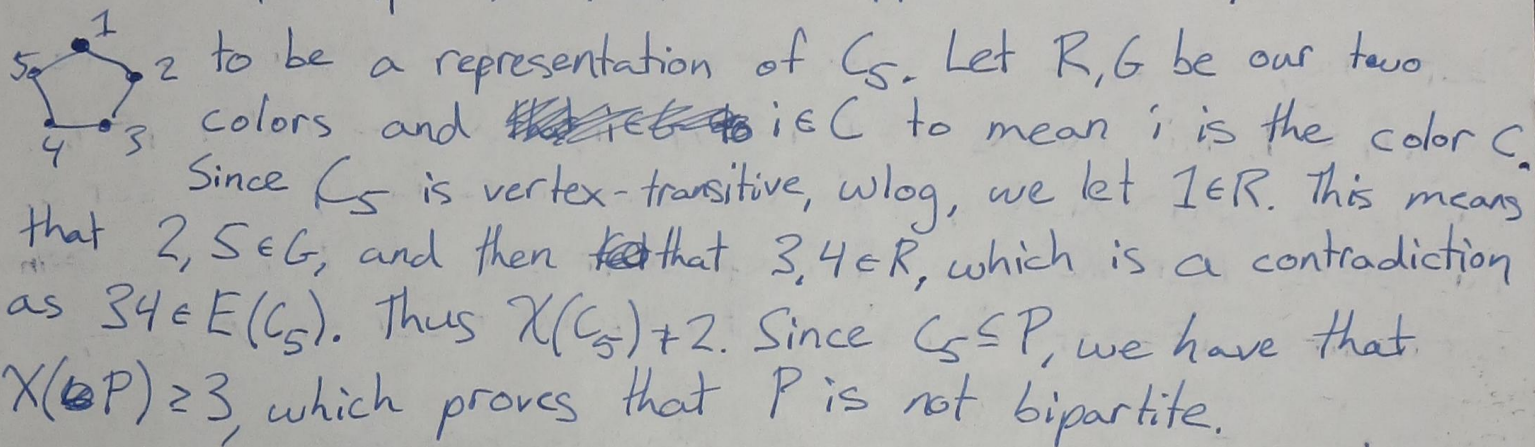 1
5 2 to be a representation of C₅. Let R,G be our two
4 3 colors and i∈C to mean i is the color C.
Since C₅ is vertex-transitive, wlog, we let 1∈R. This means
that 2,5∈G, and then that 3,4∈R, which is a contradiction
as 34∈E(C₅). Thus χ(C₅)≠2. Since C₅≤P, we have that
χ(P)≥3, which proves that P is not bipartite.